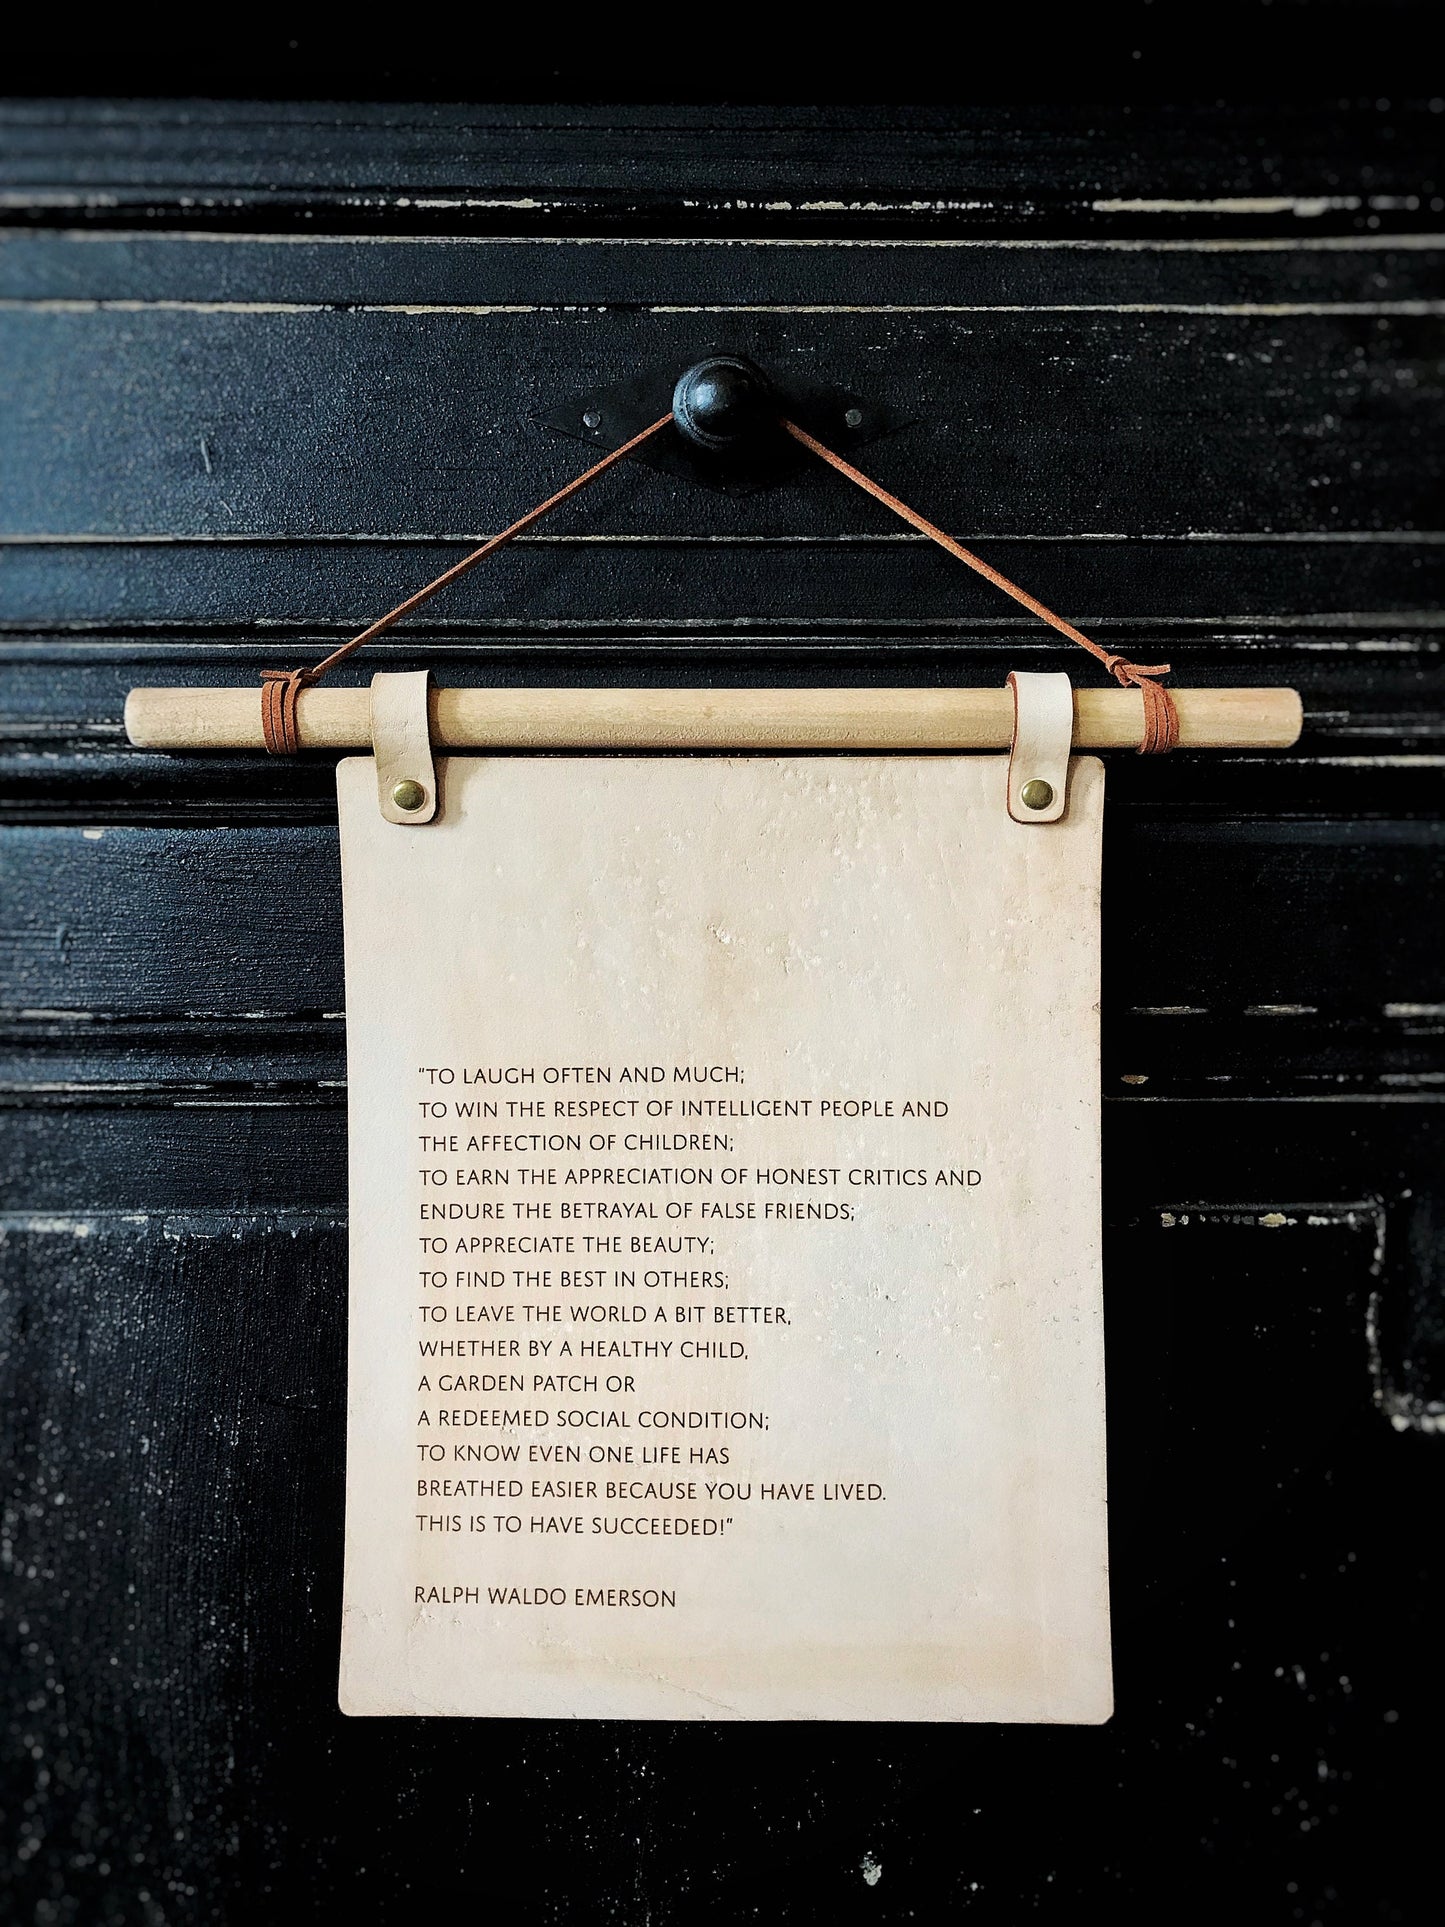 "TO LAUGH OFTEN AND MUCH;
TO WIN THE RESPECT OF INTELLIGENT PEOPLE AND
THE AFFECTION OF CHILDREN;
TO EARN THE APPRECIATION OF HONEST CRITICS AND
ENDURE THE BETRAYAL OF FALSE FRIENDS;
TO APPRECIATE THE BEAUTY;
TO FIND THE BEST IN OTHERS;
TO LEAVE THE WORLD A BIT BETTER,
WHETHER BY A HEALTHY CHILD,
A GARDEN PATCH OR
A REDEEMED SOCIAL CONDITION;
TO KNOW EVEN ONE LIFE HAS
BREATHED EASIER BECAUSE YOU HAVE LIVED.
THIS IS TO HAVE SUCCEEDED!"
RALPH WALDO EMERSON